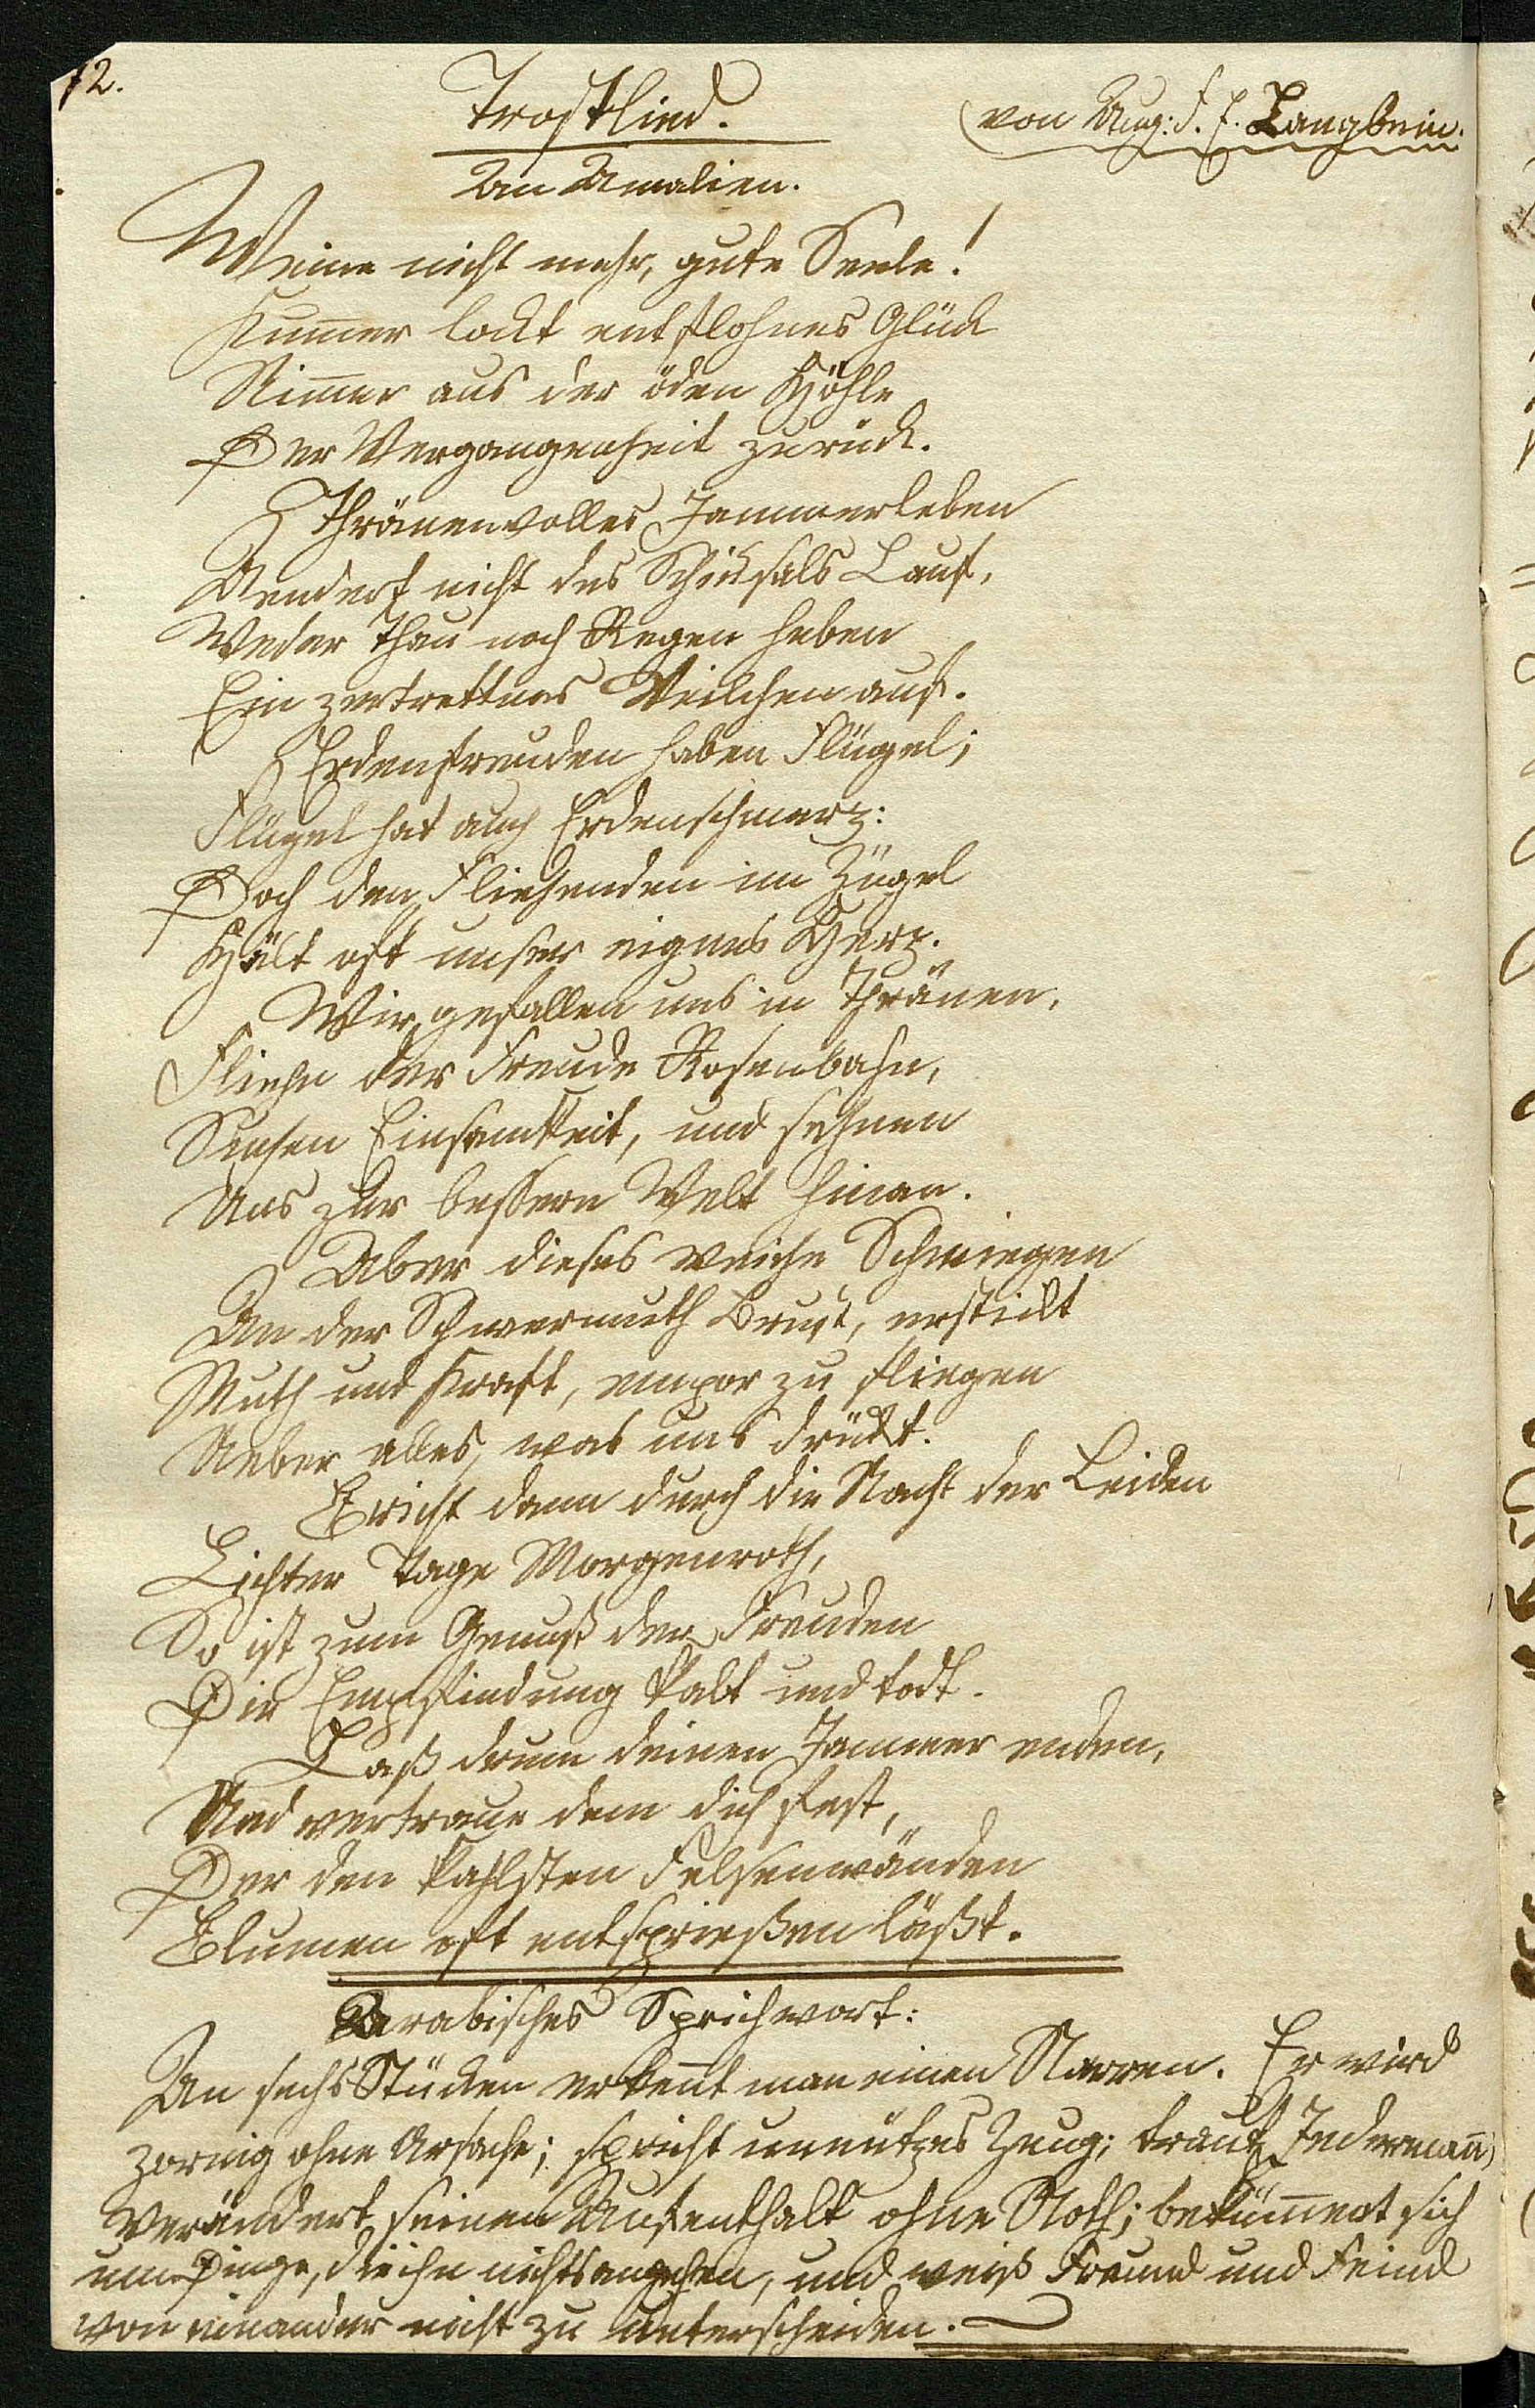 12.
Trostlied.
(von Aug: F. E. Langbein.
An Amalien.
Weine nicht mehr, gute Seele!
Kum̄er lockt entflohnes Glück
Nim̄er aus der öden Höhle
Der Vergangenheit zurück.
Thränenvolles Jammerleben
Aendert nicht des Schicksals Lauf,
Weder Thau noch Regen heben
Ein zertrettnes Veilchen auf.
Erdenfreuden haben Flügel;
Flügel hat auch Erdenschmerz:
Doch den Fliehenden im Zügel
Hält oft unser eignes Herz.
Wir gefallen uns in Thränen,
Fliehn der Freude Rosenbahn,
Suchen Einsamkeit, und sehnen
Uns zur bessern Welt hinan.
Aber dieses weiche Schmiegen
An der Schwermuth Brust, erstickt
Muth und Kraft, empor zu fliegen
Ueber alles, was uns drückt.
Bricht dann durch die Nacht der Leiden
Lichter Tage Morgenroth,
So ist zum Genuß der Freuden
Die Empfindung kalt und todt.
Laß drum deinen Jammer enden,
Und vertraue dem dich fest,
Der den kahlsten Felsenwänden
Blumen oft entsprießen läßt.
Arabisches Sprichwort:
An sechs Stücken erken̄t man einen Narren. Er wird
zornig ohne Ursache; spricht unnützes Zeug; traut Jederman̄;
verändert seinen Aufenthalt ohne Noth; beküm̄ert sich
um Dinge, die ihn nichts angehen, und weiß Freund und Feind
von einander nicht zu unterscheiden.